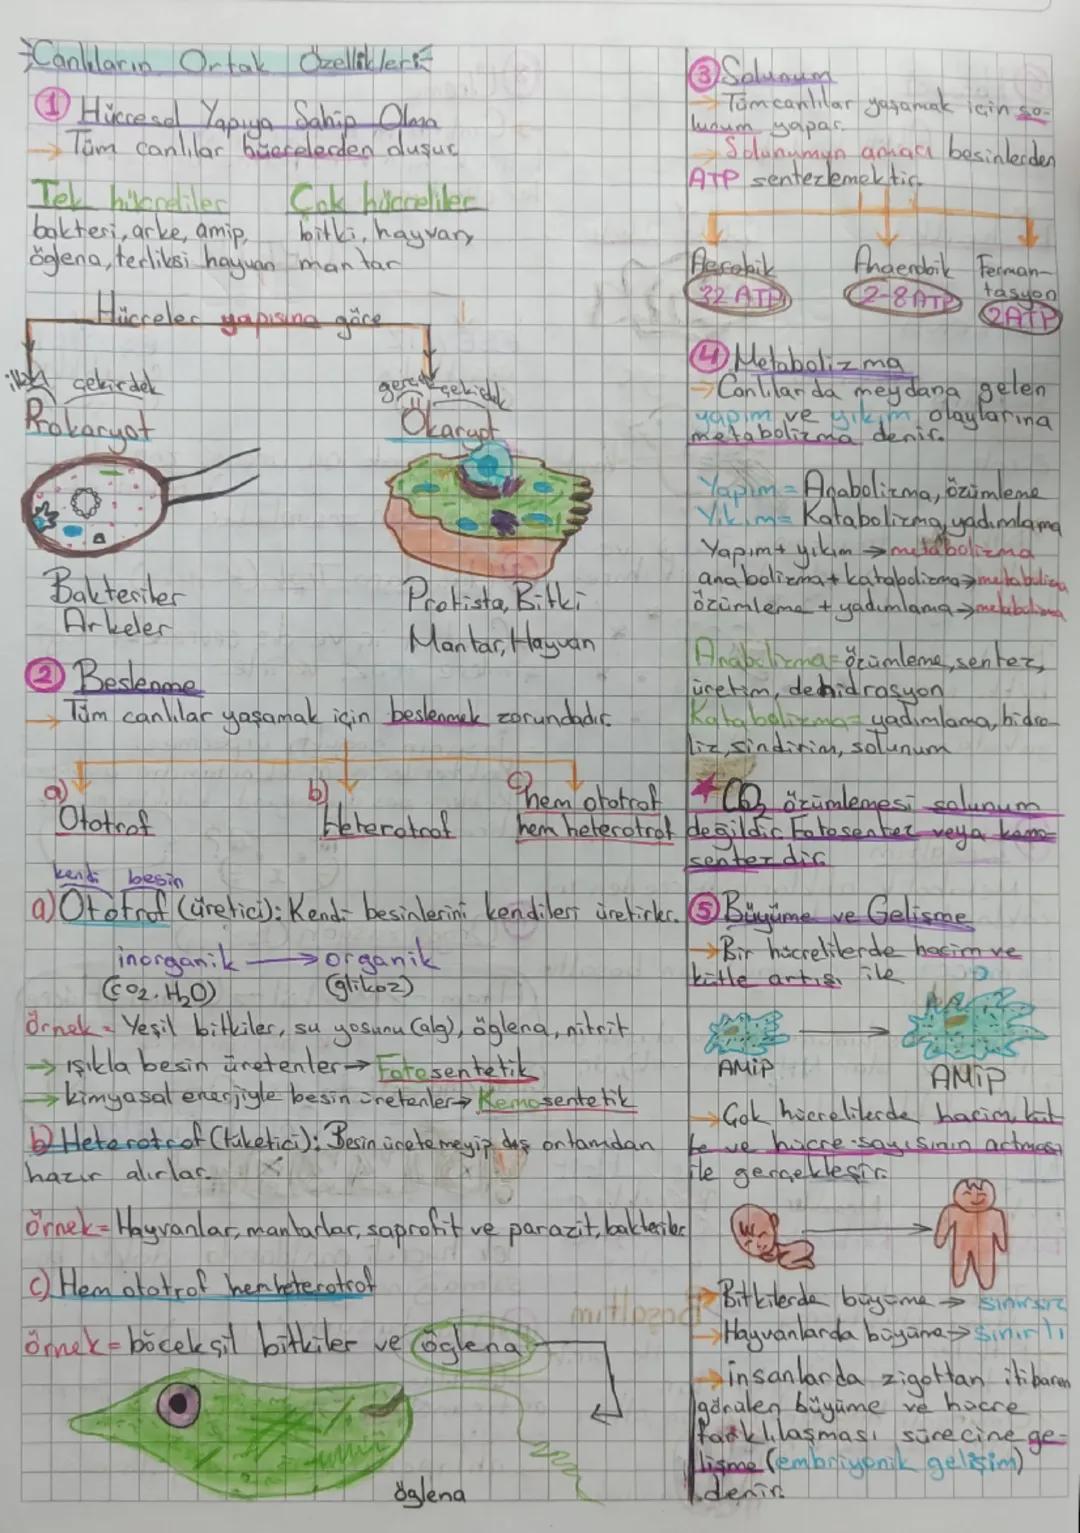 Canlıların Ortak Özellikleri
1 Hücresel Yapıya Sahip Olma
→ Tüm canlılar hücrelerden oluşur
Tek hücreliler
bakteri, arke, amip,
öglena, terliksi hayvan
Çok hücreliler
bitki, hayvan,
mantar
Hücreler yapısına göre
ilkel çekirdek
Prokaryot
Bakteriler
Arkeler
gerçek çekirdek
Ökaryot
Protista, Bitki
Mantar, Hayvan
2 Beslenme
→ Tüm canlılar yaşamak için beslenmek zorundadır.
a) Ototrof
b) Heterotrof
c) hem ototrof
hem heterotrof
kendi besin
a) Ototrof (üretici): Kendi besinlerini kendileri üretirler.
inorganik → organik
(CO2, H2O) (glikoz)
örnek = Yeşil bitkiler, su yosunu (alg), öglena, nitrit
→ ışıkla besin üretenler → Fotosentetik
→ kimyasal enerjiyle besin üretenler → Kemosentetik
b) Heterotrof (tüketici): Besin üretemeyip dış ortamdan
hazır alırlar.
örnek = Hayvanlar, mantarlar, saprofit ve parazit, bakteriler
c) Hem ototrof hem heterotrof
örnek = böcekçil bitkiler ve öglena
öglena
3 Solunum
→ Tüm canlılar yaşamak için so-
lunum yapar.
→ Solunumun amacı besinlerden
ATP sentezlemektir.
Aerobik
32 ATP
Anaerobik
2-8 ATP
Ferman-
tasyon
2ATP
4 Metabolizma
→ Canlılarda meydana gelen
yapım ve yıkım olaylarına
metabolizma denir.
Yapım = Anabolizma, özümleme
Yıkım = Katabolizma, yadımlama
Yapım + yıkım → metabolizma
anabolizma + katabolizma → metabolizma
özümleme + yadımlama → metabolizma
Anabolizma = özümleme, sentez,
üretim, dehidrasyon
Katabolizma = yadımlama, hidro-
liz, sindirim, solunum
★ CO2 özümlemesi solunum
değildir. Fotosentez veya kemo-
sentezdir.
5 Büyüme ve Gelişme
→ Bir hücrelilerde hacim ve
kütle artışı ile
AMİP
AMİP
→ Çok hücrelilerde hacim, küt
le ve hücre sayısının artması
ile gerçekleşir.
→ Bitkilerde büyüme → sınırsız
→ Hayvanlarda büyüme → sınırlı
→ insanlarda zigottan itibaren
görülen büyüme ve hücre
farklılaşması sürecine ge-
lişme (embriyonik gelişim)
denir.